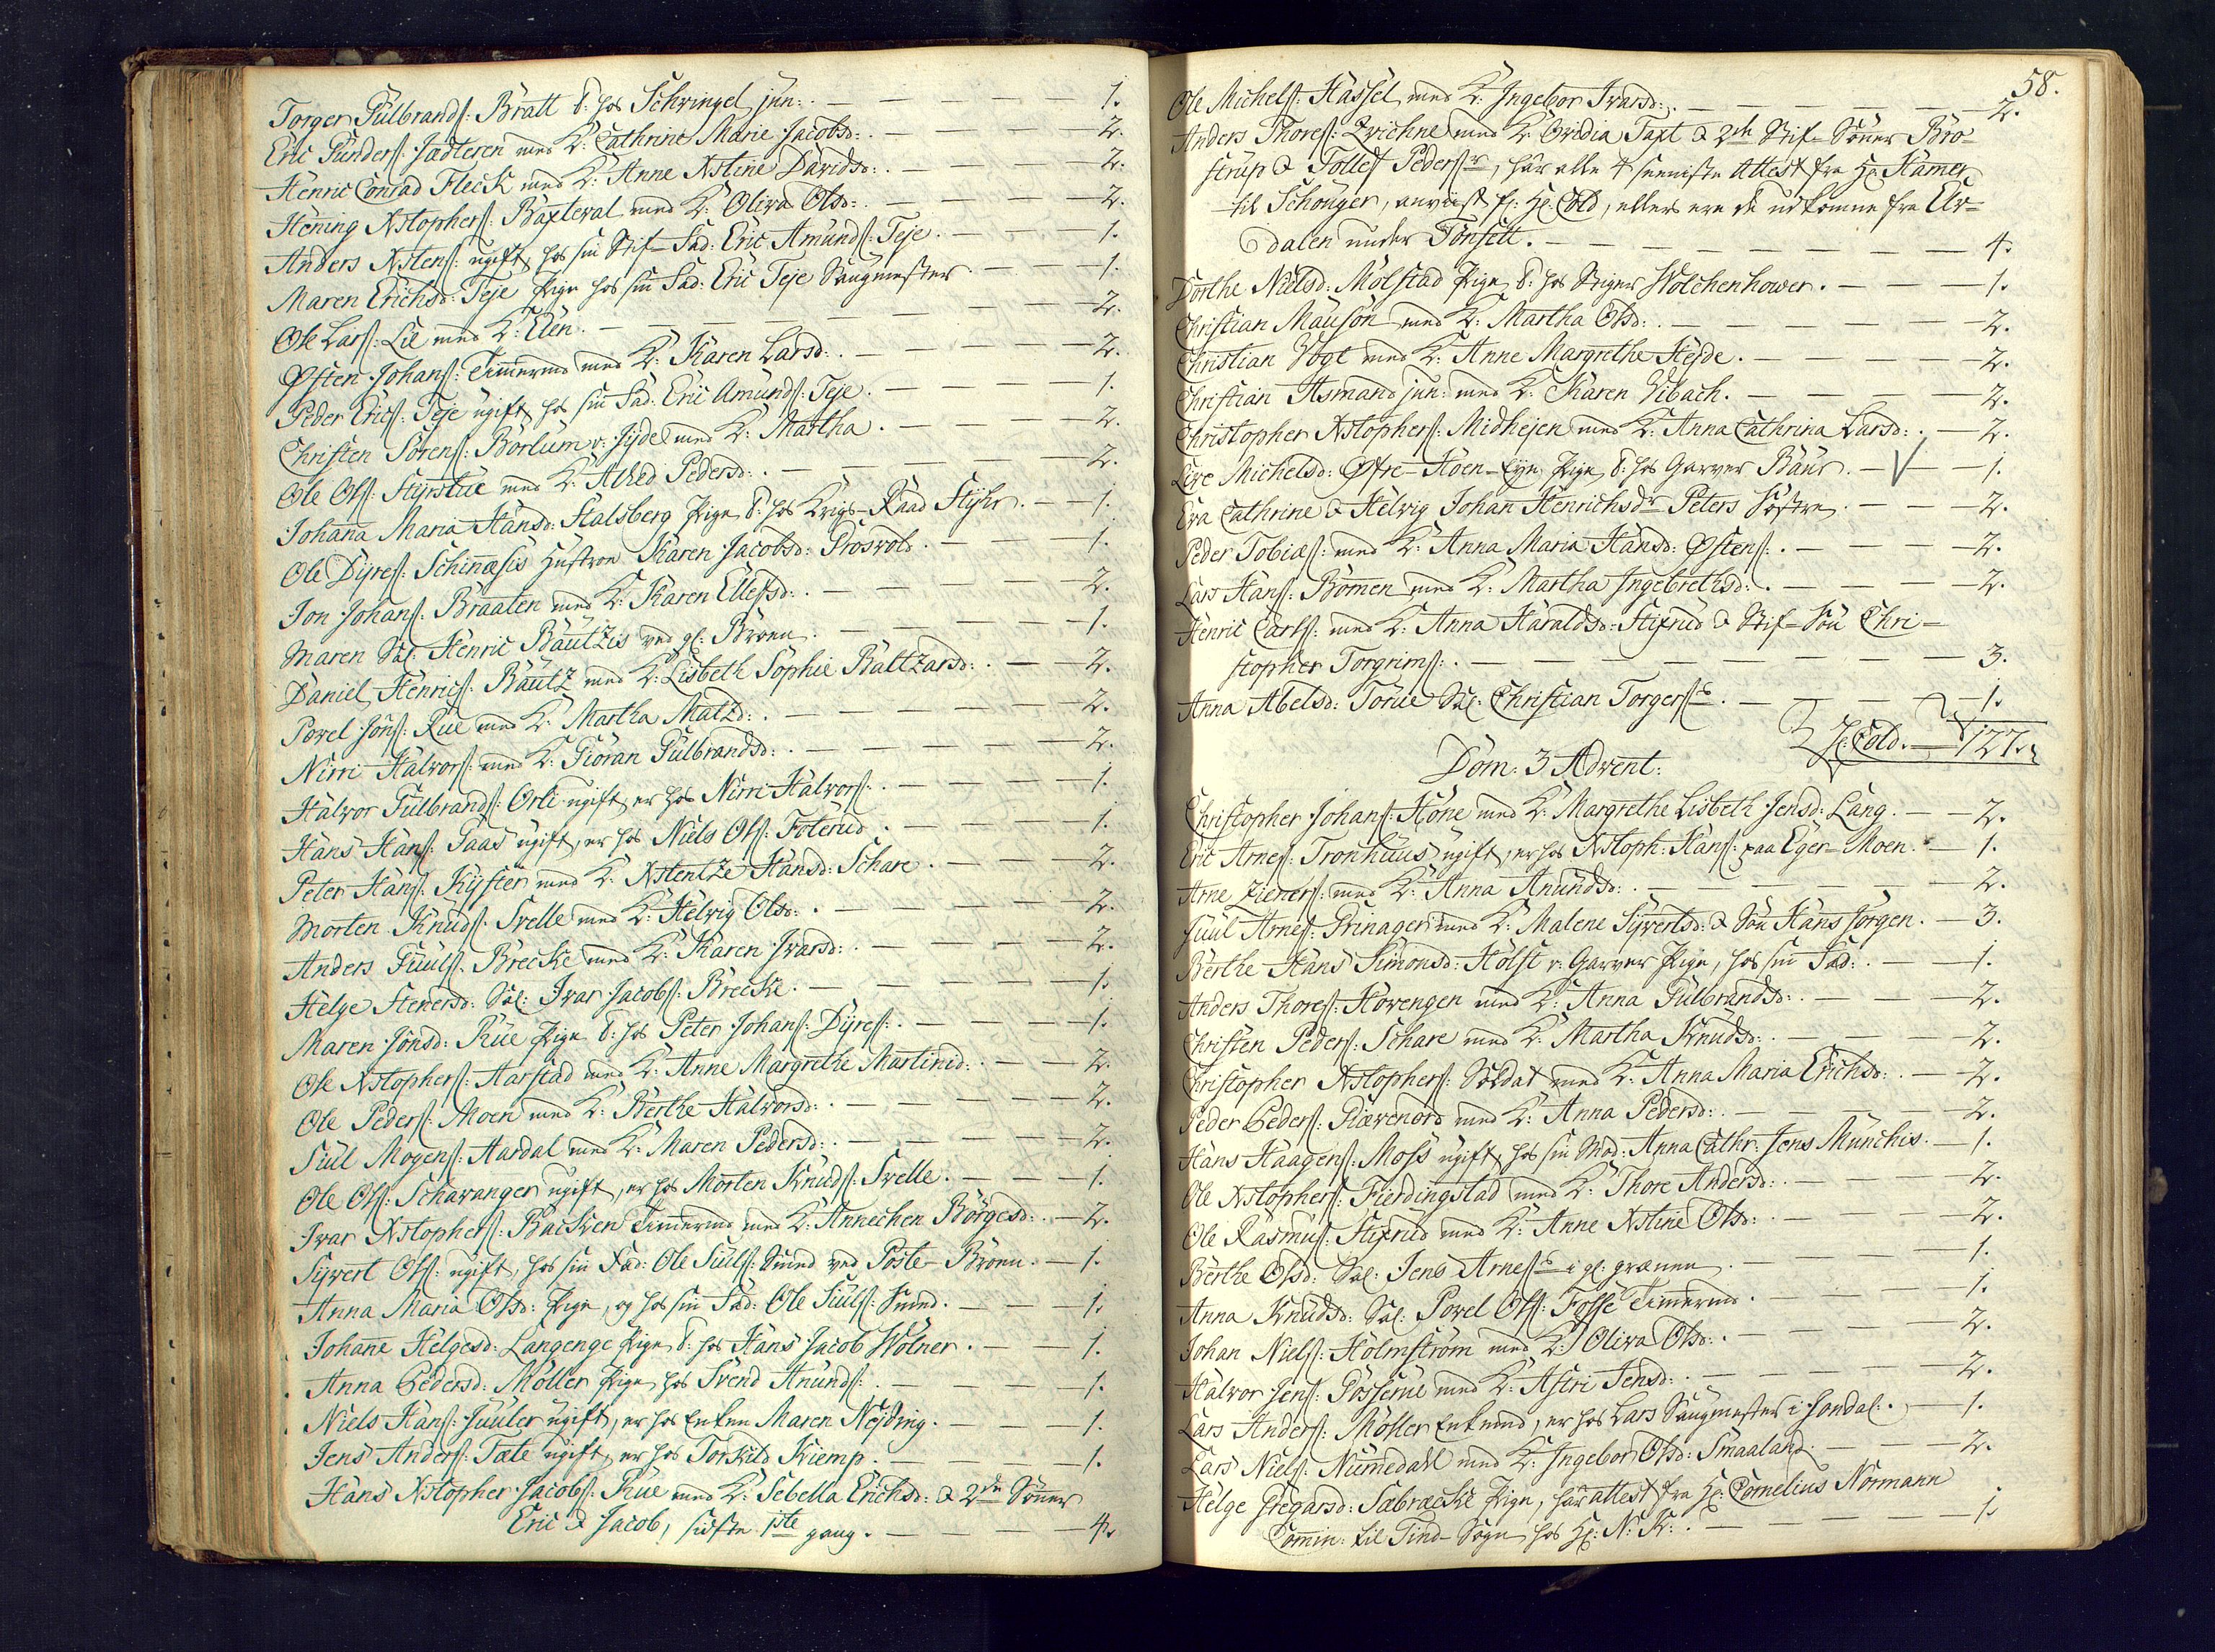 Torger Gulbrands: Bratt T: hos Schwingel jun: . — — — — 1.
Eric Gunders: Jadteren med K: Cathrine Marie Jacobsd: . — — — 2.
Henric Conrad Fleck med K: Anne Xstine Davidsd: . — — — 2.
Henning Xstophers: Baxterval med K: Oliva Olsd: . — — — 2.
Anders Xstens: ugift, hos sin Stif-Fad: Eric Amunds: Teje . — — 1.
Maren Erichsd: Teje Pige hos sin Fad: Eric Teje Saugmester . — — 1.
Ole Lars: Lie med K: Elen . — — — — — 2.
Østen Johans: Timmermd med K: Karen Larsd: . — — — 2.
Peder Erics: Teje ugift, hos sin Fad: Eric Amunds: Teje . — — — 1.
Christen Sörens: Borlum v: Jyde med K: Martha . — — — 2.
Ole Ols: Styrstue med K: Alhed Pedersd: . — — — 2.
Johanna Maria Hansd: Halsberg Pige T: hos Krigs-Raad Styhr . — 1.
Ole Dyres: Schinnesis Hustroe Karen Jacobsd: Grosvold . — — 1.
Jon Johans: Braaten med K: Karen Ellefsd: . — — — 2.
Maren Sal: Henric Bautzis ved gl: Broen . — — — 1.
Daniel Henrics: Bautz med K: Lisbeth Sophie Baltzarsd: . — — 2.
Povel Jöns: Rue med K: Martha Matzd: . — — — 2.
Nirri Halvors: med K: Giöran Gulbrandsd: . — — — 2.
Halvor Gulbrands: Orli ugift, er hos Nirri Halvors: . — — — 1.
Hans Hans: Gaas ugift, er hos Niels Ols: Foterud . — — — 1.
Peter Hans: Kyster med K: Xstentze Hansd: Schare . — — 2.
Morten Knuds: Svelle med K: Helvig Olsd: . — — — 2.
Anders Juuls: Brecke med K: Karen Ivarsd: . — — — 2.
Helge Stenersd: Sal: Ivar Jacobs: Brecke . — — — 1.
Maren Jönsd: Rue Pige T: hos Peter Johans: Dyres: . — — — 1.
Ole Xstophers: Aarstad med K: Anne Margrethe Martinid: . — — 2.
Ole Peders: Moen med K: Berthe Halvorsd: . — — — 2.
Siul Mogens: Aardal med K: Maren Pedersd: . — — — 2.
Ole Ols: Schavanger ugift, er hos Morten Knuds: Svelle . — — — 1.
Ivar Xstophers: Backen Timmermd med K: Annechen Börgesd: . — 2.
Syvert Ols: ugift, hos sin Fad: Ole Siuls: Smed ved Poste-Broen . — 1.
Anna Maria Olsd: Pige, og hos sin Fad: Ole Siuls: Smed . — — 1.
Johanne Helgesd: Langenge Pige T: hos Hans Jacob Wölner . — — 1.
Anna Pedersd: Möller Pige hos Svend Anunds: . — — — 1.
Niels Hans: Juuler ugift, er hos Enken Maren Nejding . — — 1.
Jens Anders: Tate ugift, er hos Torkild Kiemp . — — — 1.
Hans Xstopher Jacobs: Rue med K: Sebella Erichsd: & 2de Sönner
Eric & Jacob, sidste 1ste gang . — — — 4.
58.
Ole Michels: Hassel med K: Ingebor Ivarsd: . — — — — 2.
Anders Thores: med K: Ovidia Taxt & 2de Stif-Sönner Bro-
strup & Tollef Peders:r, har alle 4 seeniste Attest fra Hr: Hammer
til Schonger, anviist f: Hr: Cold, ellers ere de udkomne fra Elv-
dalen under Tönsett . — — — — 4.
Dorthe Nielsd: Molstad Pige T: hos Stiger Wolchenhower . — — 1.
Christian Mauson med K: Martha Olsd: . — — — — 2.
Christian Vogt med K: Anne Margrethe Hejde . — — — 2.
Christian Asmand jun: med K: Karen Vibach . — — — 2.
Christopher Xstophers: Midhejen med K: Anna Cathrina Larsd: . — 2.
Live Michelsd: Øfre-Hoen-Eje Pige T: hos Garver Baur . — V — 1.
Eva Cathrine & Helvig Johan Henrichsd:r Peters Söstre . — — 2.
Peder Tobias: med K: Anna Maria Hansd: Østens: . — — — 2.
Lars Hans: Bommen med K: Martha Ingebrethsd: . — — — 2.
Henric Carls: med K: Anna Haraldsd: Stixrud & Stif-Sön Chri-
stopher Torgrims: . — — — — — 3.
Anna Abelsd: Torue Sal: Christian Torgers: . — — — 1.
H: Cold. — 127.
Dom: 3 Advent:
Christopher Johans: Höne med K: Margrethe Lisbeth Jensd: Lang . — 2.
Eric Arnes: Tronhuus ugift, er hos Xstoph: Hans: paa Eger-Moen . — 1.
Arne Zieners: med K: Anna Anundsd: . — — — 2.
Juul Arnes: Grinager med K: Malene Syvertsd: & Sön Hans Jörgen . — 3.
Berthe Hans Simonsd: Holst v: Garver Pige, hos sin Fad: . — — 1.
Anders Thores: Hovengen med K: Anna Gulbrandsd: . — — 2.
Christen Peders: Schare med K: Martha Knudsd: . — — — 2.
Christopher Xstophers: Soldat med K: Anna Maria Erichsd: . — 2.
Peder Peders: Giævenord med K: Anna Pedersd: . — — — 2.
Hans Haagens: Moss ugift, hos sin Mod: Anna Cathr: Jens Munchis . — 1.
Ole Xstophers: Fierdingstad med K: Thore Andersd: . — — — 2.
Ole Rasmus: Stixrud med K: Anne Xstine Olsd: . — — — 2.
Berthe Olsd: Sal: Jens Arnes: i gl: grænen . — — — 1.
Anna Knudsd: Sal: Povel Ols: Fosse Timmermd . — — — 1.
Johan Niels: Holmström med K: Oliva Olsd: . — — — 2.
Halvor Jens: Gosserue med K: Astri Jensd: . — — — 2.
Lars Anders: Möller Enkemd, er hos Lars Saugmester i Jondal: . — 1.
Lars Niels: Numedahl med K: Ingebor Olsd: Smaaland . — — 2.
Helge Gregarsd: Sabræcke Pige, har attest fra Hr: Cornelius Normann
Commin: til Tind-Sogn hos Hr: N: K: . — — — 1.